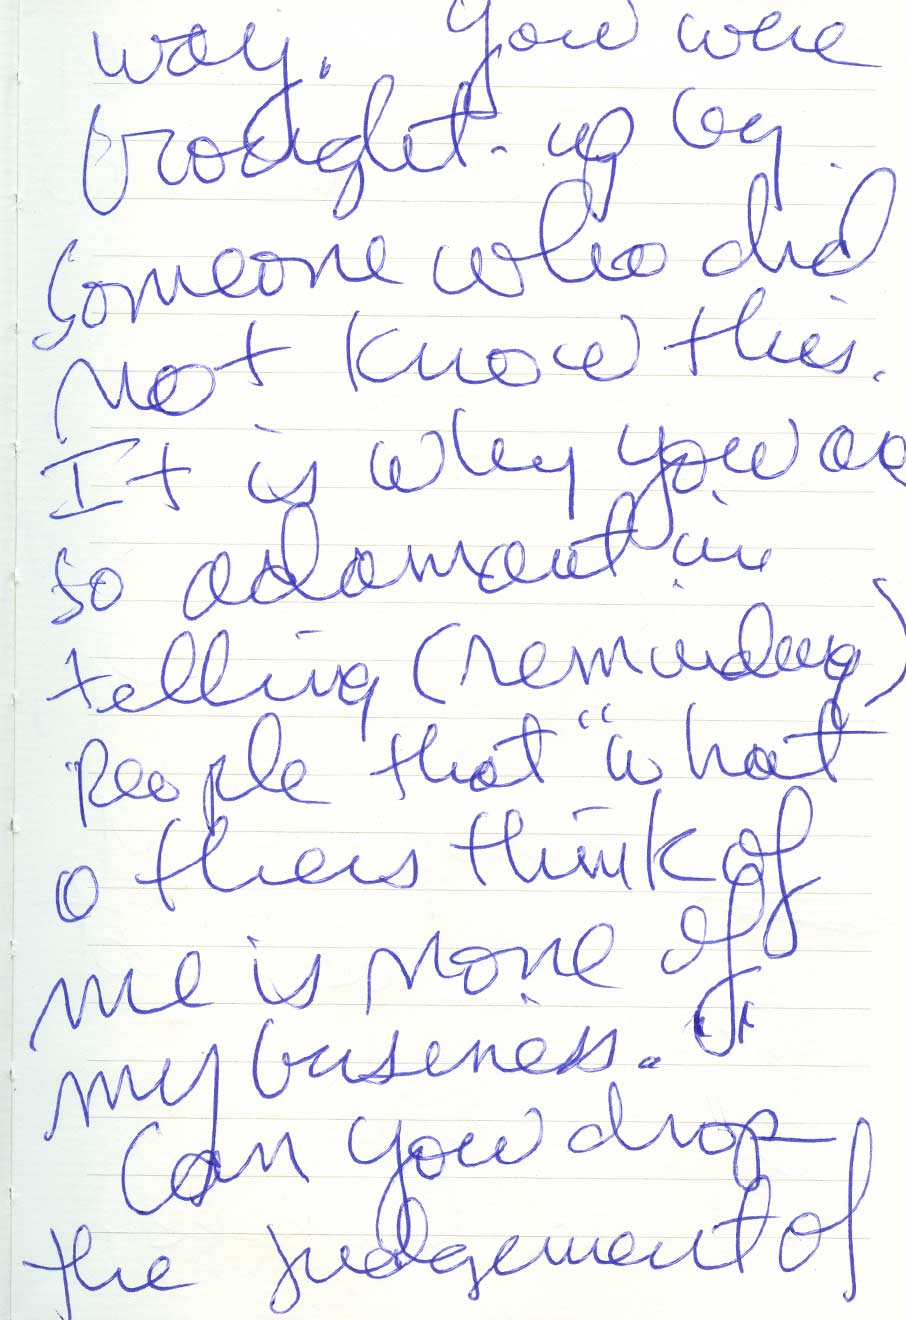 way. You were
brought up by
someone who did
not know this.
It is why you are
so adamant in
telling (reminding)
people that "what
others think of
me is none of
my business."
Can you drop
the judgement of